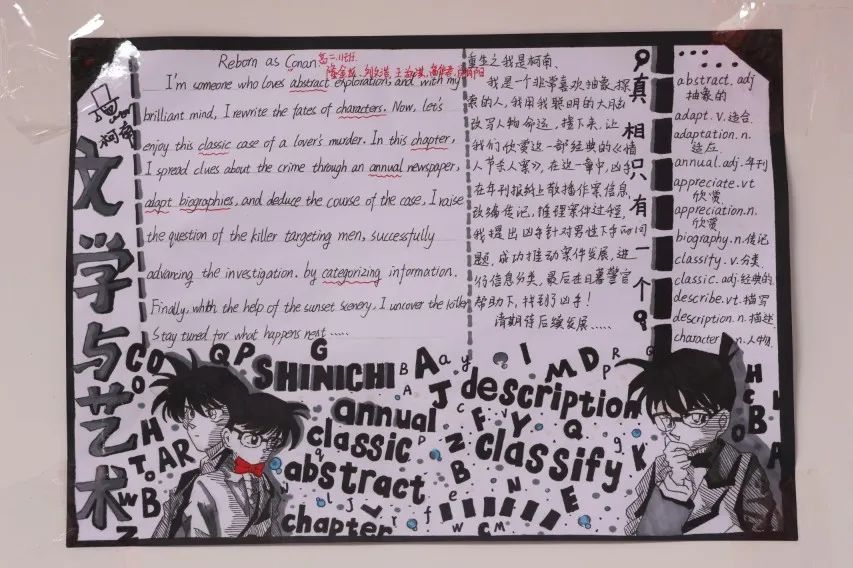 柯南
文学与艺术
Reborn as Conan
I'm someone who loves abstract exploration, and with my
brilliant mind, I rewrite the fates of characters. Now, let's
enjoy this classic case of a lover's murder. In this chapter,
I spread clues about the crime through an annual newspaper,
adapt biographies, and deduce the course of the case, I raise
the question of the killer targeting men, successfully
advancing the investigation. by categorizing information.
Finally, with the help of the sunset scenery, I uncover the killer
Stay tuned for what happens next.....
重生之我是柯南、
我是一个非常喜欢抽象、探
索的人,我用我聪明的大脑
改写人物命运,接下来,让
我们欣赏这一部经典的《情
人节杀人案》,在这一章中,凶手
在年刊报纸上散播作案信息,
改编传记,推理案件过程,
我提出凶手针对男性下手的问
题,成功推动案件发展,进
行信息分类,最后在日暮警官
帮助下,找到了凶手!
请期待后续发展.....
真相只有一个
abstract. adj
抽象的
adapt. v. 适合
adaptation. n.
适应
annual. adj. 年刊
appreciate. vt
欣赏
appreciation. n.
欣赏
biography. n. 传记
classify. v. 分类
classic. adj. 经典的
describe. vt. 描写
description. n. 描述
character n. 人物
SHINICHI
annual
classic
abstract
chapter
description
classify